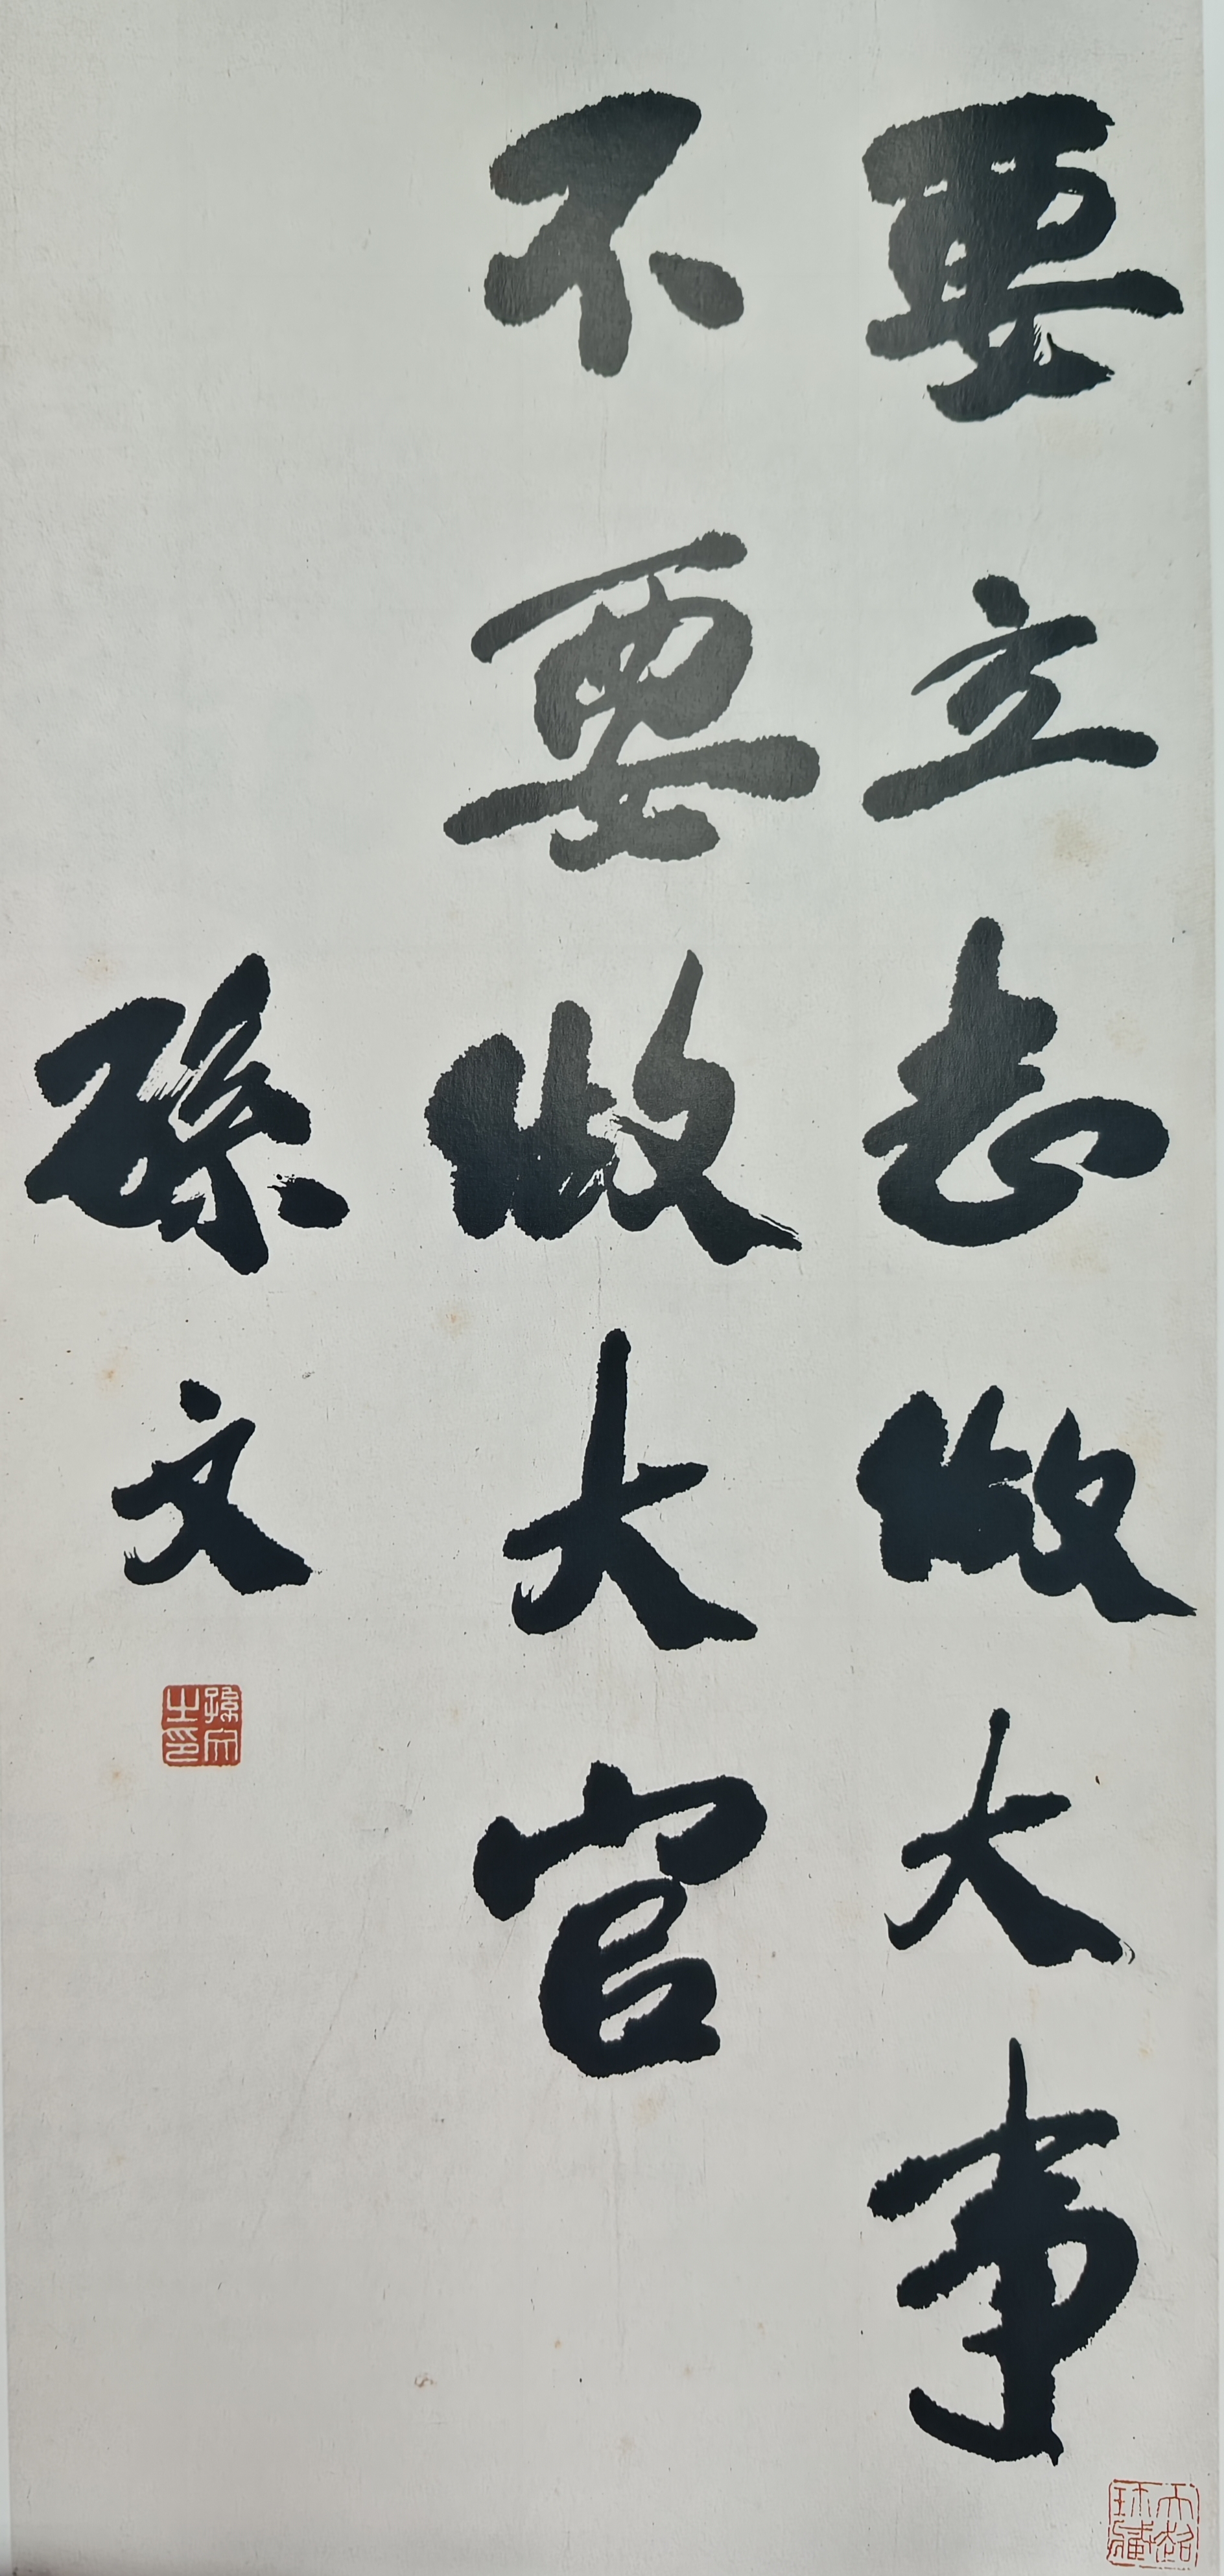 要立志做大事
不要做大官
孫文
孫文之印